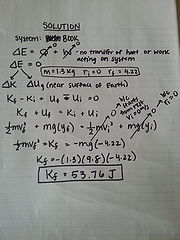 SOLUTION
System: Book
ΔE = Q + W → no transfer of heat or work acting on system
ΔE = 0
m = 1.3 kg ri = 0 rf = 4.22
ΔK ΔUg (near surface of Earth)
Kf - Ki + Uf - Ui = 0
Kf + Uf = Ki + Ui
½mvf² + mg(yf) = ½mvi² + mg(yi)
½mvf² = Kf = -mg(-4.22)
Kf = -(1.3)(9.8)(-4.22)
Kf = 53.76 J